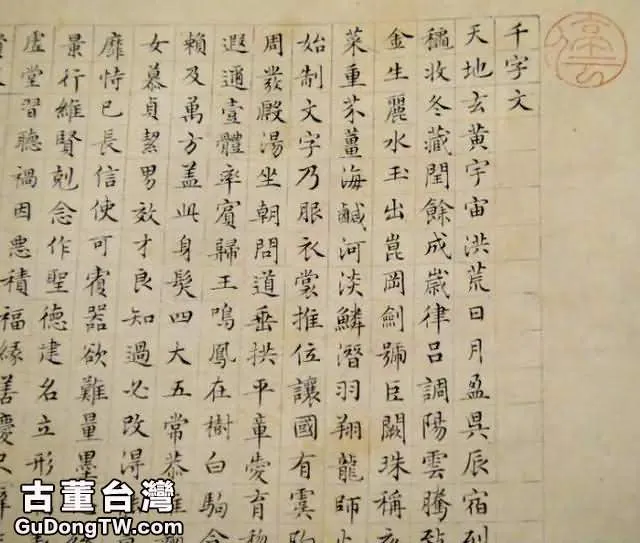 千字文
天地玄黃宇宙洪荒日月盈昃辰宿列
穐收冬藏閏餘成歲律呂調陽雲騰致
金生麗水玉出崑岡劍號巨闕珠稱夜
菜重芥薑海鹹河淡鱗潛羽翔龍師火
始制文字乃服衣裳推位讓國有虞陶
周發殷湯坐朝問道垂拱平章愛育
遐邇壹體率賓歸王鳴鳳在樹白駒食
賴及萬方蓋此身髮四大五常恭惟
女慕貞絜男效才良知過必改得
靡恃己長信使可覆器欲難量墨
景行維賢剋念作聖德建名立形
虛堂習聽禍因惡積福緣善慶尺璧
古董台灣
GuDongTW.com